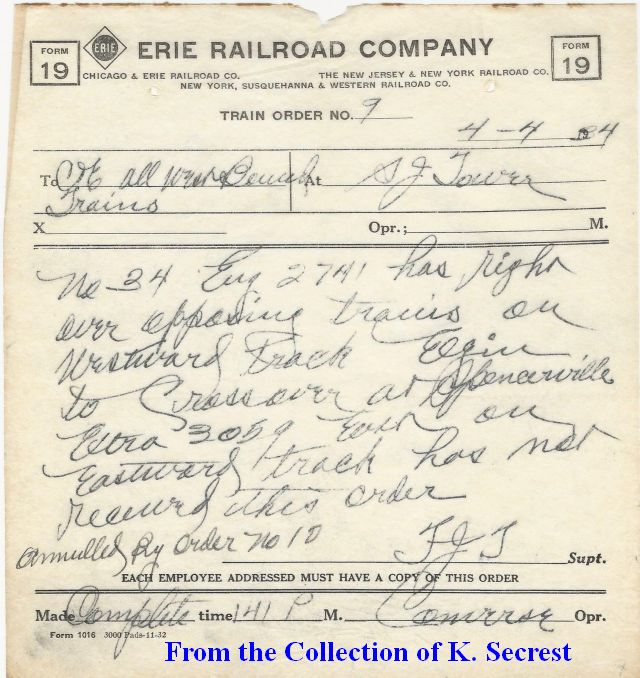 FORM 19
ERIE
ERIE RAILROAD COMPANY
FORM 19
CHICAGO & ERIE RAILROAD CO. THE NEW JERSEY & NEW YORK RAILROAD CO.
NEW YORK, SUSQUEHANNA & WESTERN RAILROAD CO.
TRAIN ORDER NO. 9
4-4 1934
To C&E all West Bound At S.J. Tower
Trains
X Opr.; M.
No 34 Eng 2741 has right
over opposing trains on
Westward track Elgin
to Crossover at Spencerville
Extra 3059 East on
Eastward track has not
received this order
Annulled By order No 10
T J T Supt.
EACH EMPLOYEE ADDRESSED MUST HAVE A COPY OF THIS ORDER
Made Complete time 141 P M. Converse Opr.
Form 1016 3000 Pads-11-32
From the Collection of K. Secrest